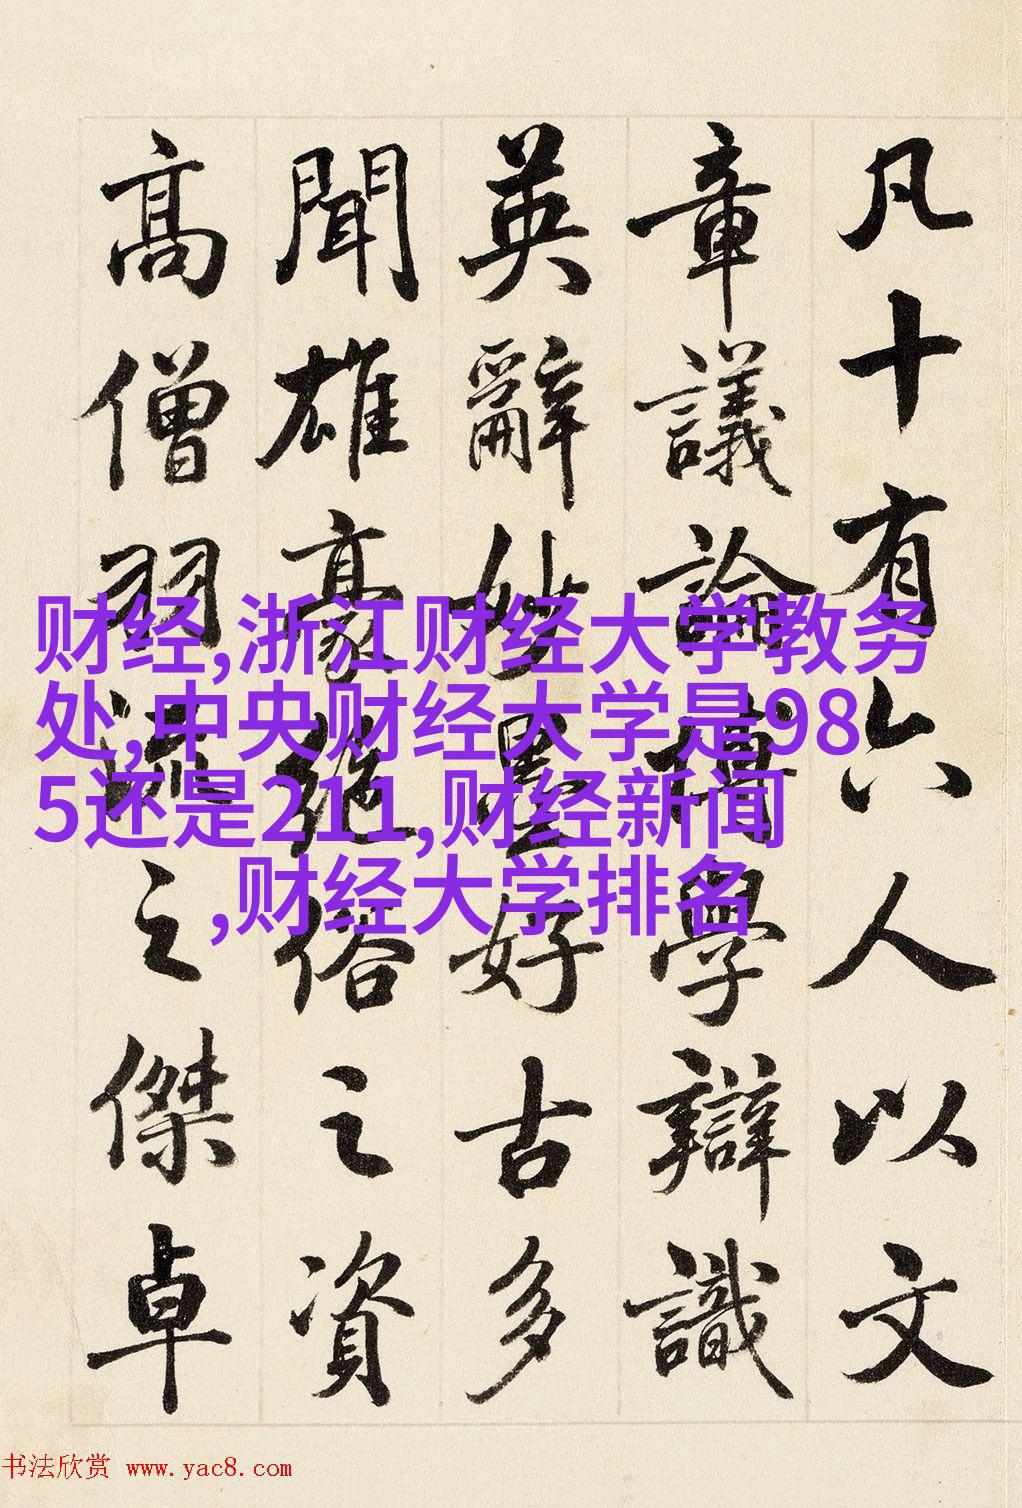 凡十有六人以文
章議論博學辯識
英辭妙墨好古多
聞雄豪絕俗之資
高僧羽流之傑卓
财经,浙江财经大学教务
处,中央财经大学是98
5还是211,财经新闻
,财经大学排名
书法欣赏 www.yac8.com